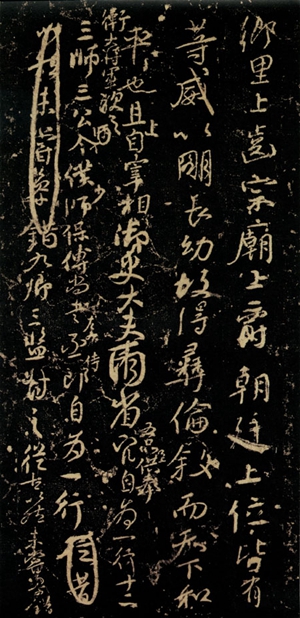 鄉里上齒宗廟上爵朝廷上位皆有
等威以明長幼故得彝倫敘而天下和
平也且上自宰相御史大夫兩省五品以上供奉官自為一行十二
衛大將軍次之三師三公令僕少師保傅尚書左右丞侍郎自為一行
錯九卿三監對之從古以然未嘗參錯